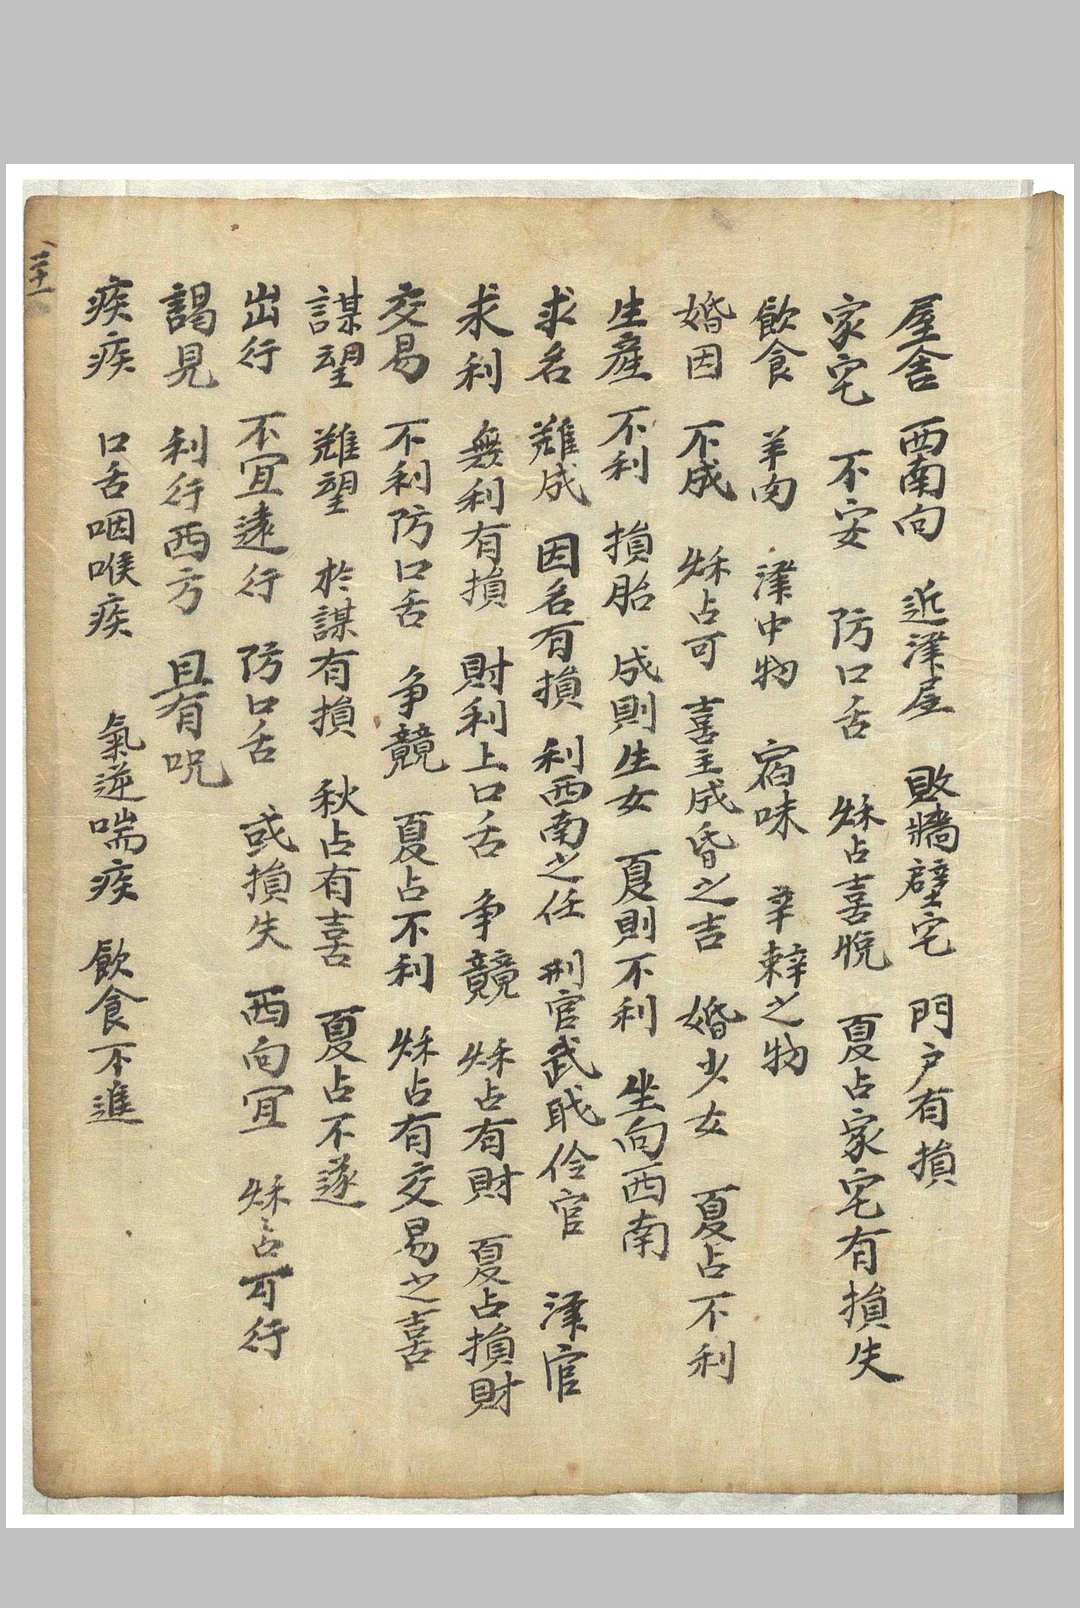 屋舍 西南向 近澤屋 敗牆壁宅 門戶有損
家宅 不安 防口舌 秌占喜悅 夏占家宅有損失
飲食 羊肉 澤中物 宿味 辛辣之物
婚因 不成 秌占可喜主成昏之吉 婚少女 夏占不利
生產 不利 損胎 成則生女 夏則不利 坐向西南
求名 難成 因名有損 利西南之任 刑官武職伶官 澤官
求利 無利有損 財利上口舌 争競 秌占有財 夏占損財
交易 不利防口舌 争競 夏占不利 秌占有交易之喜
謀望 難望 於謀有損 秋占有喜 夏占不遂
出行 不宜遠行 防口舌 或損失 西向宜 秌占可行
謁見 利行西方 且有咒
疾疾 口舌咽喉疾 氣逆喘疾 飲食不進